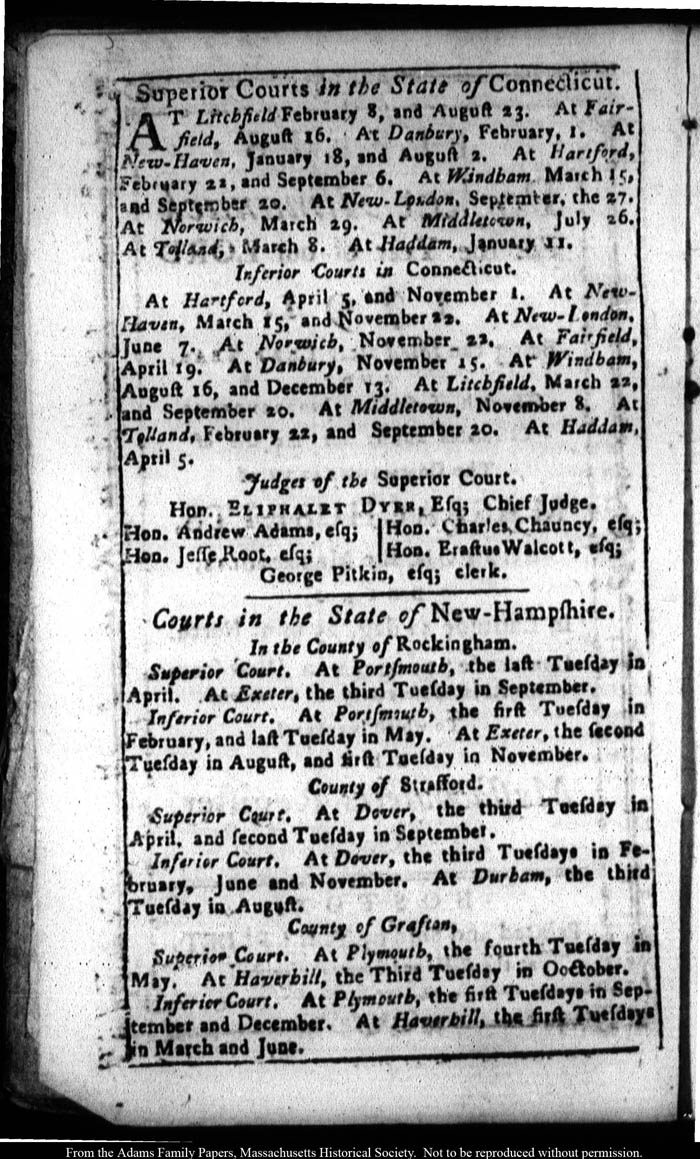 Superior Courts in the State of Connecticut.
AT Litchfield February 8, and Auguſt 23. At Fair-
field, Auguſt 16. At Danbury, February, 1. At
New-Haven, January 18, and Auguſt 2. At Hartford,
February 22, and September 6. At Windham March 15,
and September 20. At New-London, September, the 27.
At Norwich, March 29. At Middletown, July 26.
At Tolland, March 8. At Haddam, January 11.
Inferior Courts in Connecticut.
At Hartford, April 5, and November 1. At New-
Haven, March 15, and November 22. At New-London,
June 7. At Norwich, November 22, At Fairfield,
April 19. At Danbury, November 15. At Windham,
Auguſt 16, and December 13. At Litchfield, March 22,
and September 20. At Middletown, November 8. At
Tolland, February 22, and September 20. At Haddam,
April 5.
Judges of the Superior Court.
Hon. ELIPHALET DYER, Eſq; Chief Judge.
Hon. Andrew Adams, eſq; Hon. Charles Chauncy, eſq;
Hon. Jeſſe Root, eſq; Hon. Eraſtus Walcott, eſq;
George Pitkin, eſq; clerk.
Courts in the State of New-Hampſhire.
In the County of Rockingham.
Superior Court. At Portſmouth, the laſt Tueſday in
April. At Exeter, the third Tueſday in September.
Inferior Court. At Portſmouth, the firſt Tueſday in
February, and laſt Tueſday in May. At Exeter, the ſecond
Tueſday in Auguſt, and firſt Tueſday in November.
County of Strafford.
Superior Court. At Dover, the third Tueſday in
April, and ſecond Tueſday in September.
Inferior Court. At Dover, the third Tueſdays in Fe-
bruary, June and November. At Durham, the third
Tueſday in Auguſt.
County of Grafton,
Superior Court. At Plymouth, the fourth Tueſday in
May. At Haverhill, the Third Tueſday in Ooctober.
Inferior Court. At Plymouth, the firſt Tueſdays in Sep-
tember and December. At Haverhill, the firſt Tueſdays
in March and June.
From the Adams Family Papers, Massachusetts Historical Society. Not to be reproduced without permission.